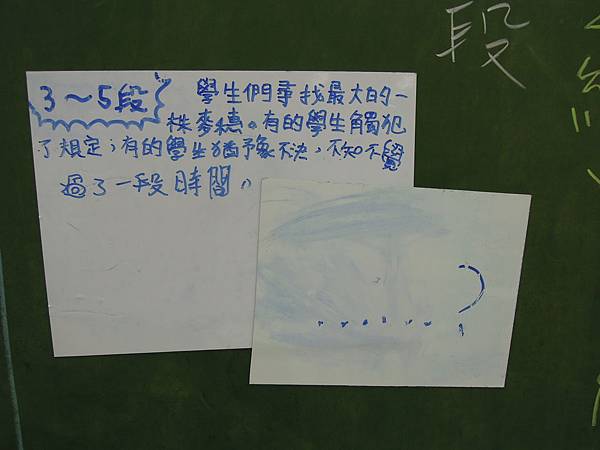 段
3～5段
學生們尋找最大的一
株麥穗。有的學生觸犯
了規定；有的學生猶豫不決，不知不覺
過了一段時間。